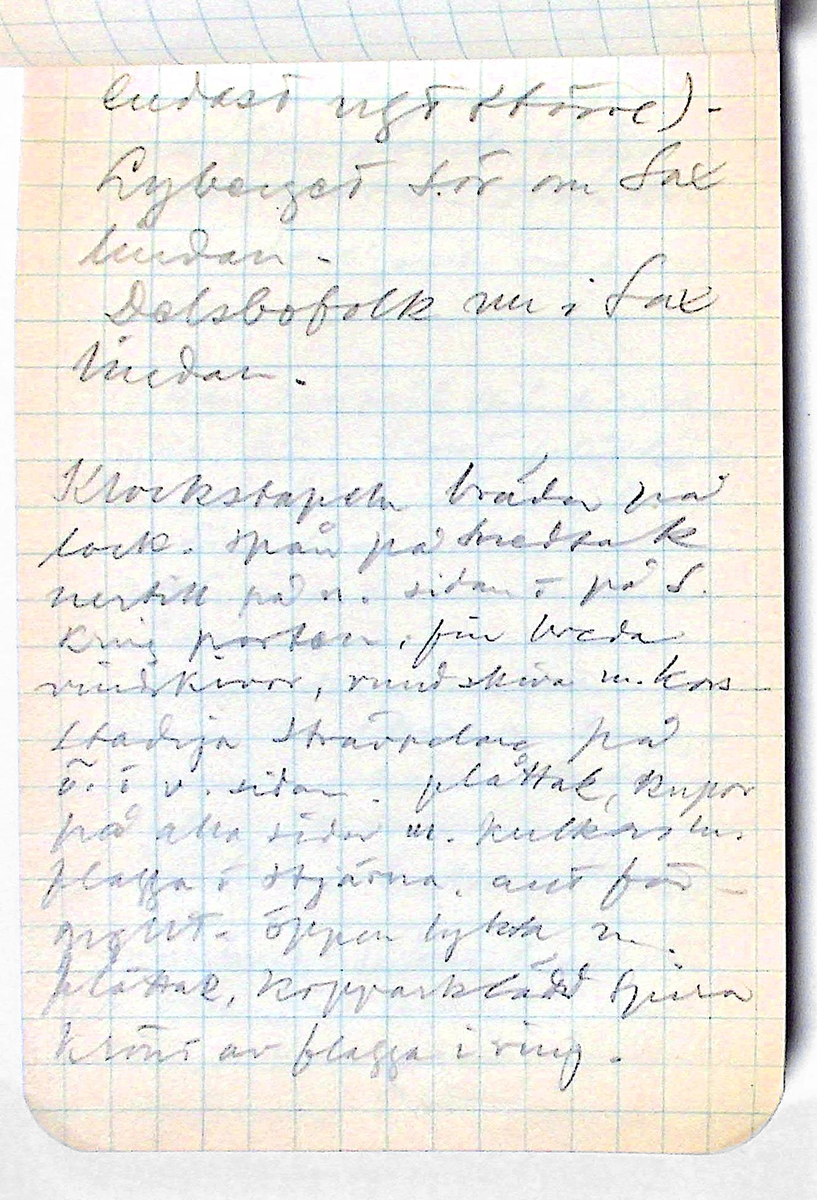 endast ngt större).
Lyberget sör om Sax
lindan.
Delsbofolk nu i Sax
lindan.
Klockstapeln bräder på
lock. spån på
nertill på n. sidan o på s.
kring porten. fin breda
vindskivor, rundskiva m. kors
stadiga strävpelare på
ö. o v. sidan. plåttak, kupor
på alla sidor m.
flagga o stjärna, allt för-
gyllt. öppen lykta m.
plåttak, kopparklädd spira
krönt av flagga i ring.